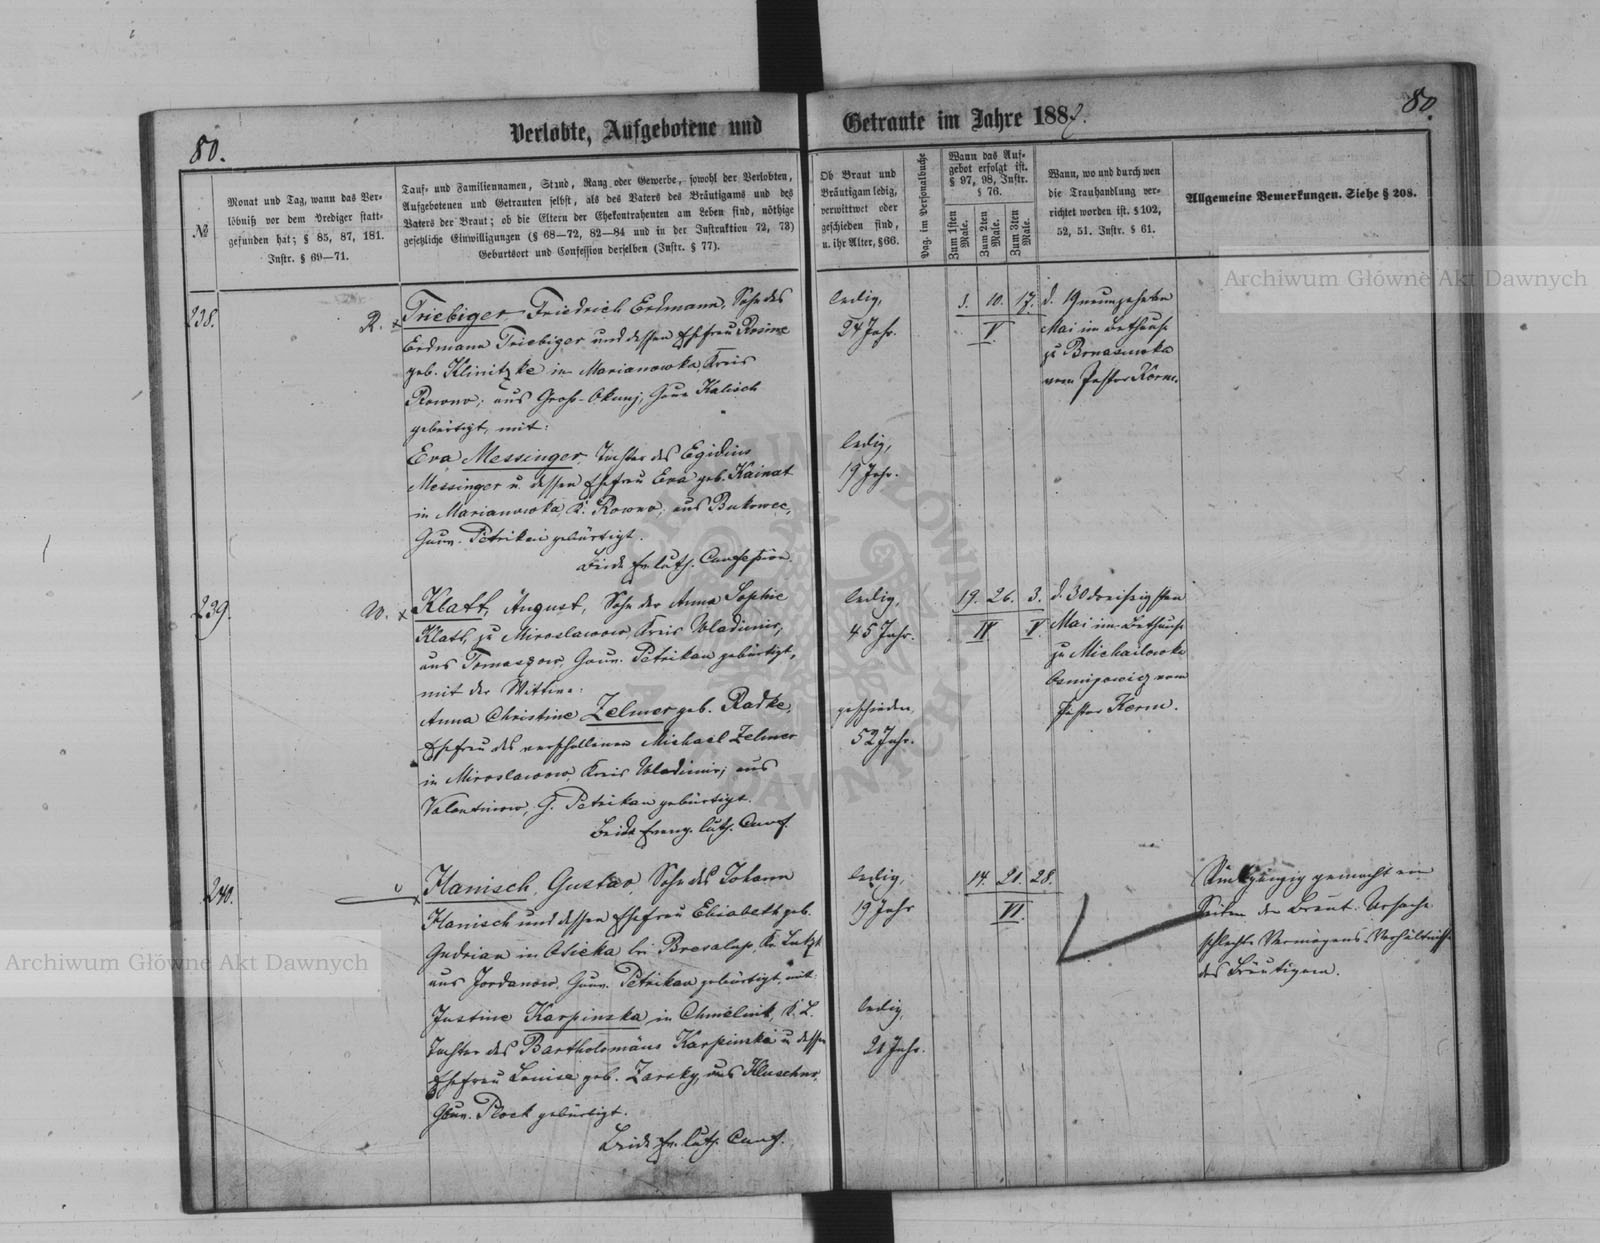 80.
Verlobte, Aufgebotene und
Getraute im Jahre 1882.
80.
№
Monat und Tag, wann das Ver-
löbniß vor dem Prediger statt-
gefunden hat; § 85, 87, 181.
Instr. § 69—71.
Tauf- und Familiennamen, Stand, Rang oder Gewerbe, sowohl der Verlobten,
Aufgebotenen und Getrauten selbst, als des Vaters des Bräutigams und des
Vaters der Braut; ob die Eltern der Ehekontrahenten am Leben sind, nöthige
gesetzliche Einwilligungen (§ 68—72, 82—84 und in der Instruktion 72, 73)
Geburtsort und Confession derselben (Instr. § 77).
Ob Braut und
Bräutigam ledig,
verwittwet oder
geschieden sind,
u. ihr Alter, § 66.
Pag. im Personalbuche
Wann das Auf-
gebot erfolgt ist.
§ 97, 98, Instr.
§ 76.
Zum 1sten Male.
Zum 2ten Male.
Zum 3ten Male.
Wann, wo und durch wen
die Trauhandlung ver-
richtet worden ist. § 102,
52, 51. Instr. § 61.
Allgemeine Bemerkungen. Siehe § 208.
238.
R. x
Triebiger, Friedrich Erdmann, Sohn des
Erdmann Triebiger und dessen Ehefrau Rosine
geb. Klinitzke in Marianowka Kreis
Rowno; aus Groß-Okunj, Gouv Kalisch
gebürtigt, mit:
Eva Messinger, Tochter des Egidius
Messinger u. dessen Ehefrau Eva geb. Kainat
in Marianowka, K. Rowno, aus Bukowec,
Gouv. Petrikau gebürtigt.
Beide Ev. luth. Confession.
ledig,
24 Jahr.
ledig,
19 Jahr.
3. 10. 17.
V.
d. 19 neunzehnten
Mai im Bethause
zu
vom Pastor Kerm.
239.
W. x
Klatt, August, Sohn der Anna Sophie
Klatt, zu Miroslawow, Kreis Wladimir,
aus Tomaszow, Gouv. Petrikau gebürtigt,
mit der Wittwe:
Anna Christine Zelmer geb. Radke,
Ehefrau des verschollenen Michael Zelmer
in Miroslawow, Kreis Wladimir; aus
Valentinow, G. Petrikau gebürtigt.
Beide Evang. luth. Conf.
ledig,
45 Jahr.
geschieden,
52 Jahr.
19. 26. 3.
IV V.
d. 30 dreißigsten
Mai im Bethause
zu Michailowka
vom
Pastor Kerm.
240.
x
Hanisch, Gustav, Sohn des Johann
Hanisch und dessen Ehefrau Elisabeth geb.
Gudrian in Osicka bei Kr. Lutzk
aus Jordanow, Gouv. Petrikau gebürtigt, mit:
Justine Karpinska, in Chmelnik, K. L.
Tochter des Bartholomäus Karpinski u. dessen
Ehefrau Louise geb. Zarsky, aus
Gouv. Plock gebürtigt.
Beide Ev. luth. Conf.
ledig,
19 Jahr
ledig,
21 Jahr.
14. 21. 28.
VI.
Rückgängig gemacht von
Seiten der Braut. Ursache
schlechte Vermögens Verhältnisse
des Bräutigam.
Archiwum Główne Akt Dawnych
Archiwum Główne Akt Dawnych